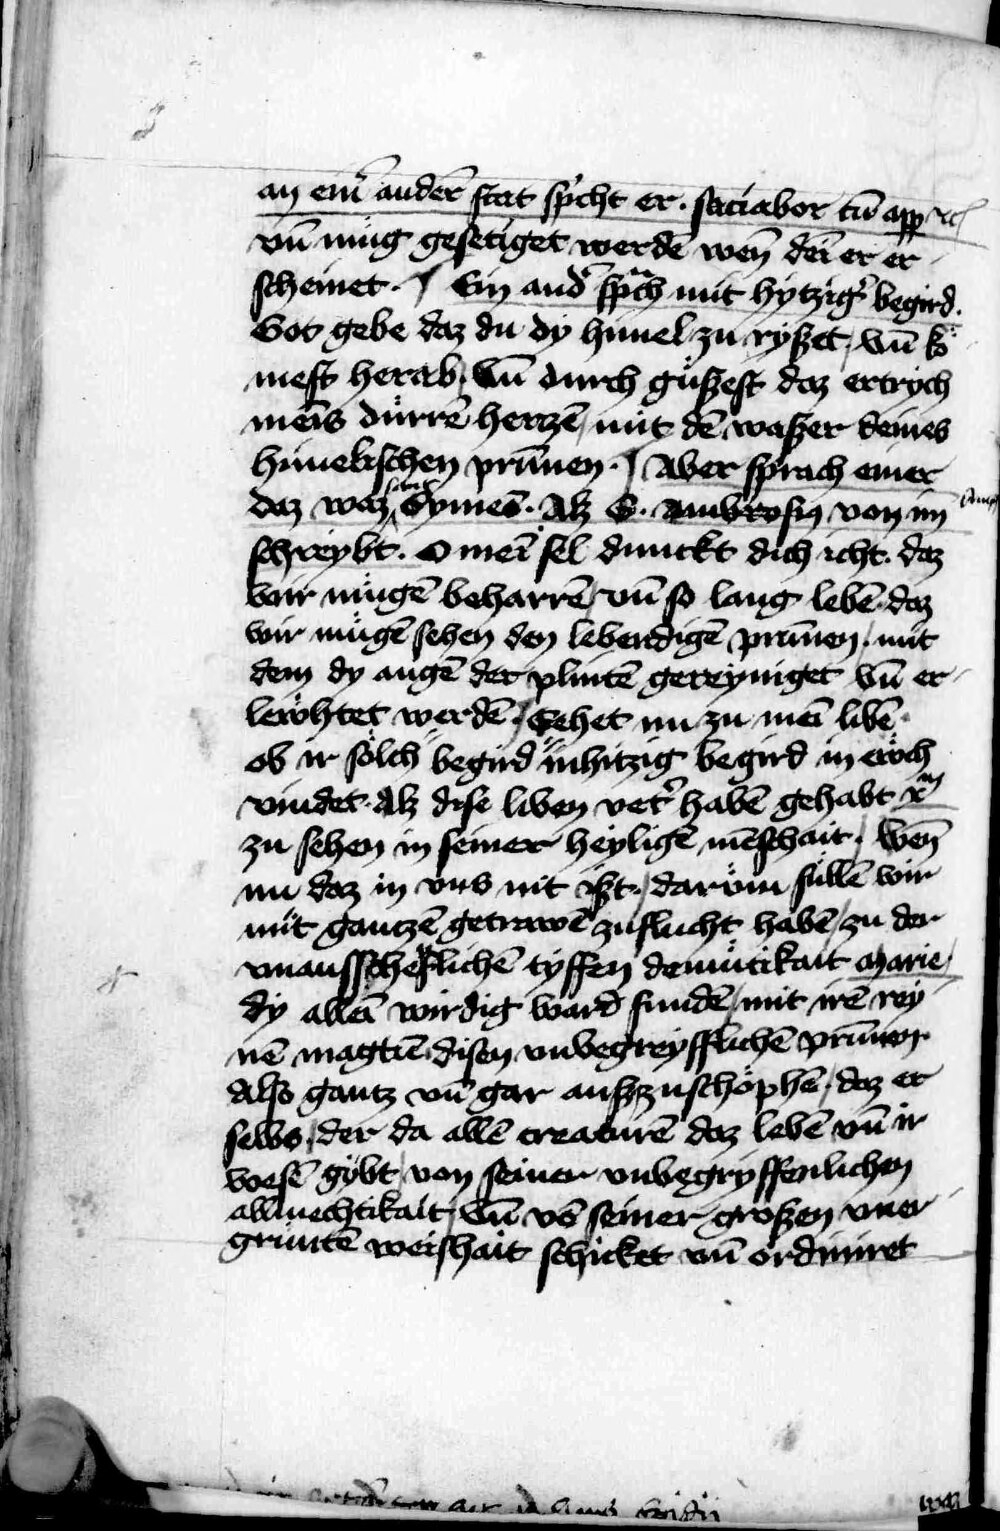 an eim̄ anderē stat spricht er. saciabor cū app rc̄
vn̄ mag gesetiget werdē wen̄ dei er er
scheinet. Ein and' sprach mit hytzig' begird.
Got gebe daz du dy himel zu ryßet / Vn̄ kö
mest herab / Vn̄ durch güßest daz ertrych
meīs dürrē hertzē / mit dē waßer deines
himelischen prūnen. Aber sprach einer
daz waz sant Symeō. Alz S. Ambrosiꝯ von im
schreybt. O mei sel dunckt dich icht. daz
wir mügē beharrē / vn̄ so lang lebē. daz
wir mügē sehen den lebendigē prūnen / mit
dem dy augē der plintē gereyniget Vn̄ er
lewhtet werdē / Sehet nu zu mei libē.
ob ir sölch begird inhitzig begird in ewch
vindet. Alz dise liben vet' habē gehabt xm̄
zu sehen in seiner heyligē mēschait. Wen̄
nu daz in vns nit ißt / darum süllē wir
mit gantzē getrawē zuflucht habē / zu der
vnaussschefflichē tyffen demütikait Marie /
dy allei wirdig ward fundē / mit irē rey
nē magtū disen vnbegreyfflichē prūnen
Also gantz vn̄ gar außzuschöphē / daz er
selbs / der da allē creaturē daz lebē vn̄ ir
wesē gybt / von seiner vnbegryffenlichen
allmechtikait / Vn̄ vō seiner großen vner
grüntē weishait schicket vn̄ ordiniret